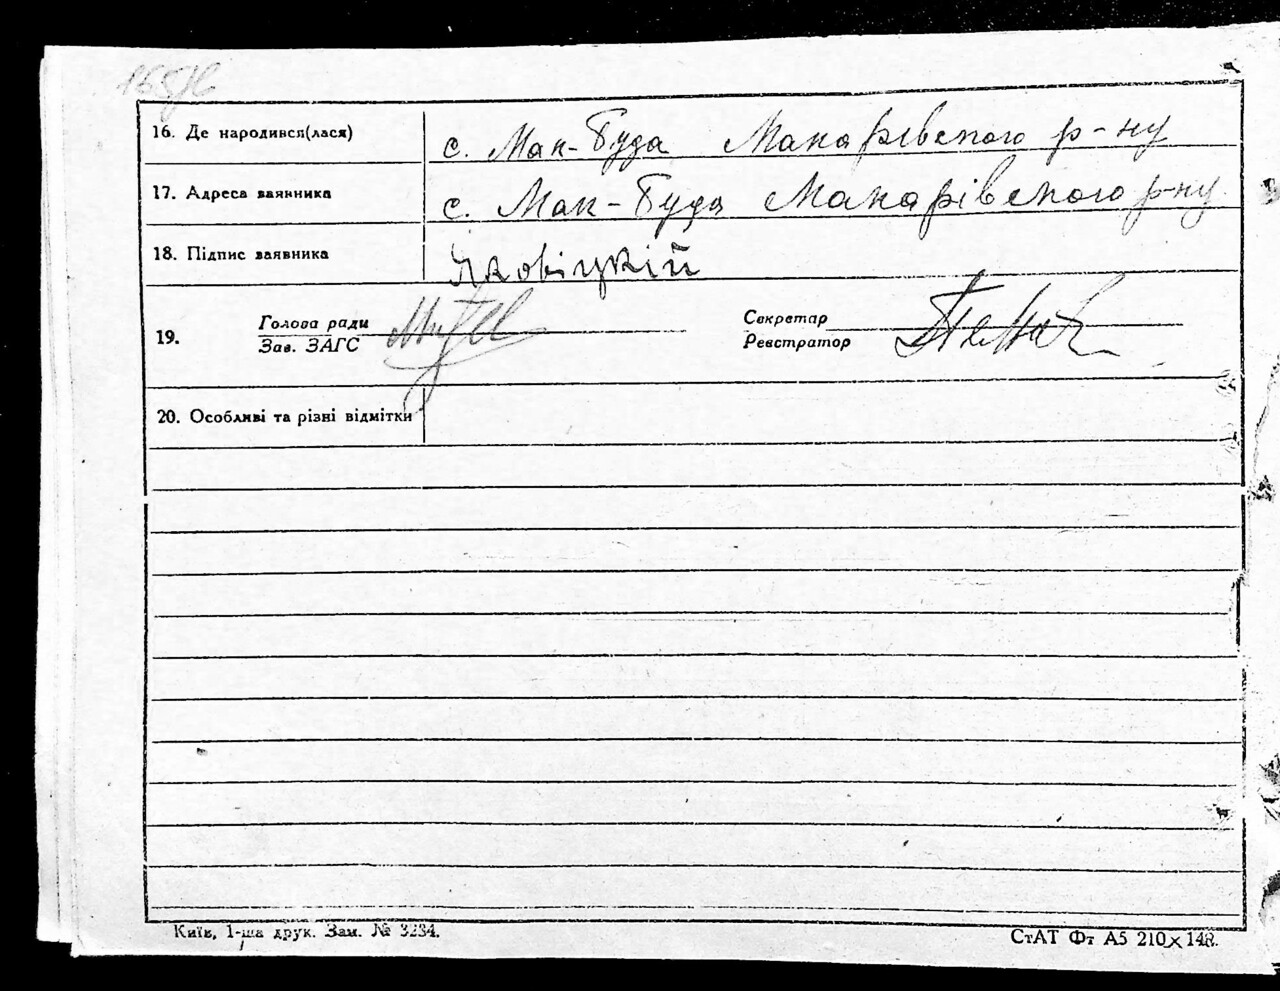 16. Де народився(лася) с. Мак-Буда Макарівского р-ну
17. Адреса заявника с. Мак-Буда Макарівского р-ну
18. Підпис заявника Яковіцкій
19. Голова ради Секретар
Зав. ЗАГС Реєстратор
20. Особливі та різні відмітки
Київ, 1-ша друк. Зам. № 3234.
СтАТ Фт А5 210×148.